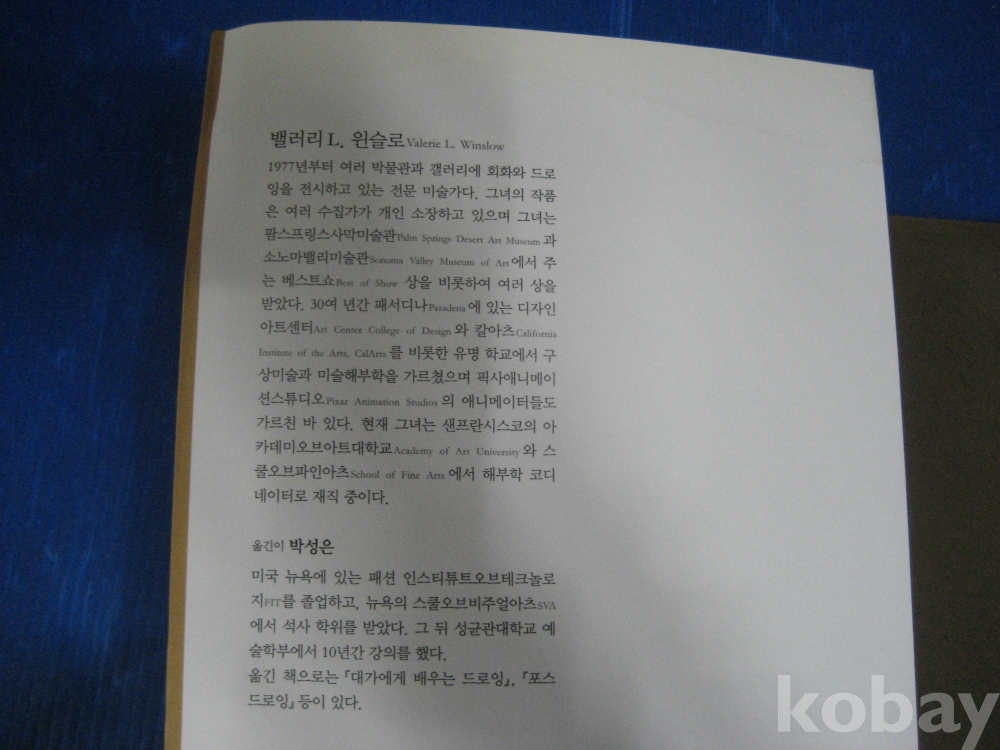 밸러리 L. 윈슬로Valerie L. Winslow
1977년부터 여러 박물관과 갤러리에 회화와 드로
잉을 전시하고 있는 전문 미술가다. 그녀의 작품
은 여러 수집가가 개인 소장하고 있으며 그녀는
팜스프링스사막미술관Palm Springs Desert Art Museum과
소노마밸리미술관Sonoma Valley Museum of Art에서 주
는 베스트쇼Best of Show 상을 비롯하여 여러 상을
받았다. 30여 년간 패서디나Pasadena에 있는 디자인
아트센터Art Center College of Design와 칼아츠California
Institute of the Arts, CalArts를 비롯한 유명 학교에서 구
상미술과 미술해부학을 가르쳤으며 픽사애니메이
션스튜디오Pixar Animation Studios의 애니메이터들도
가르친 바 있다. 현재 그녀는 샌프란시스코의 아
카데미오브아트대학교Academy of Art University와 스
쿨오브파인아츠School of Fine Arts에서 해부학 코디
네이터로 재직 중이다.
옮긴이 박성은
미국 뉴욕에 있는 패션 인스티튜트오브테크놀로
지FIT를 졸업하고, 뉴욕의 스쿨오브비주얼아츠SVA
에서 석사 학위를 받았다. 그 뒤 성균관대학교 예
술학부에서 10년간 강의를 했다.
옮긴 책으로는 『대가에게 배우는 드로잉』, 『포스
드로잉』 등이 있다.
kobay